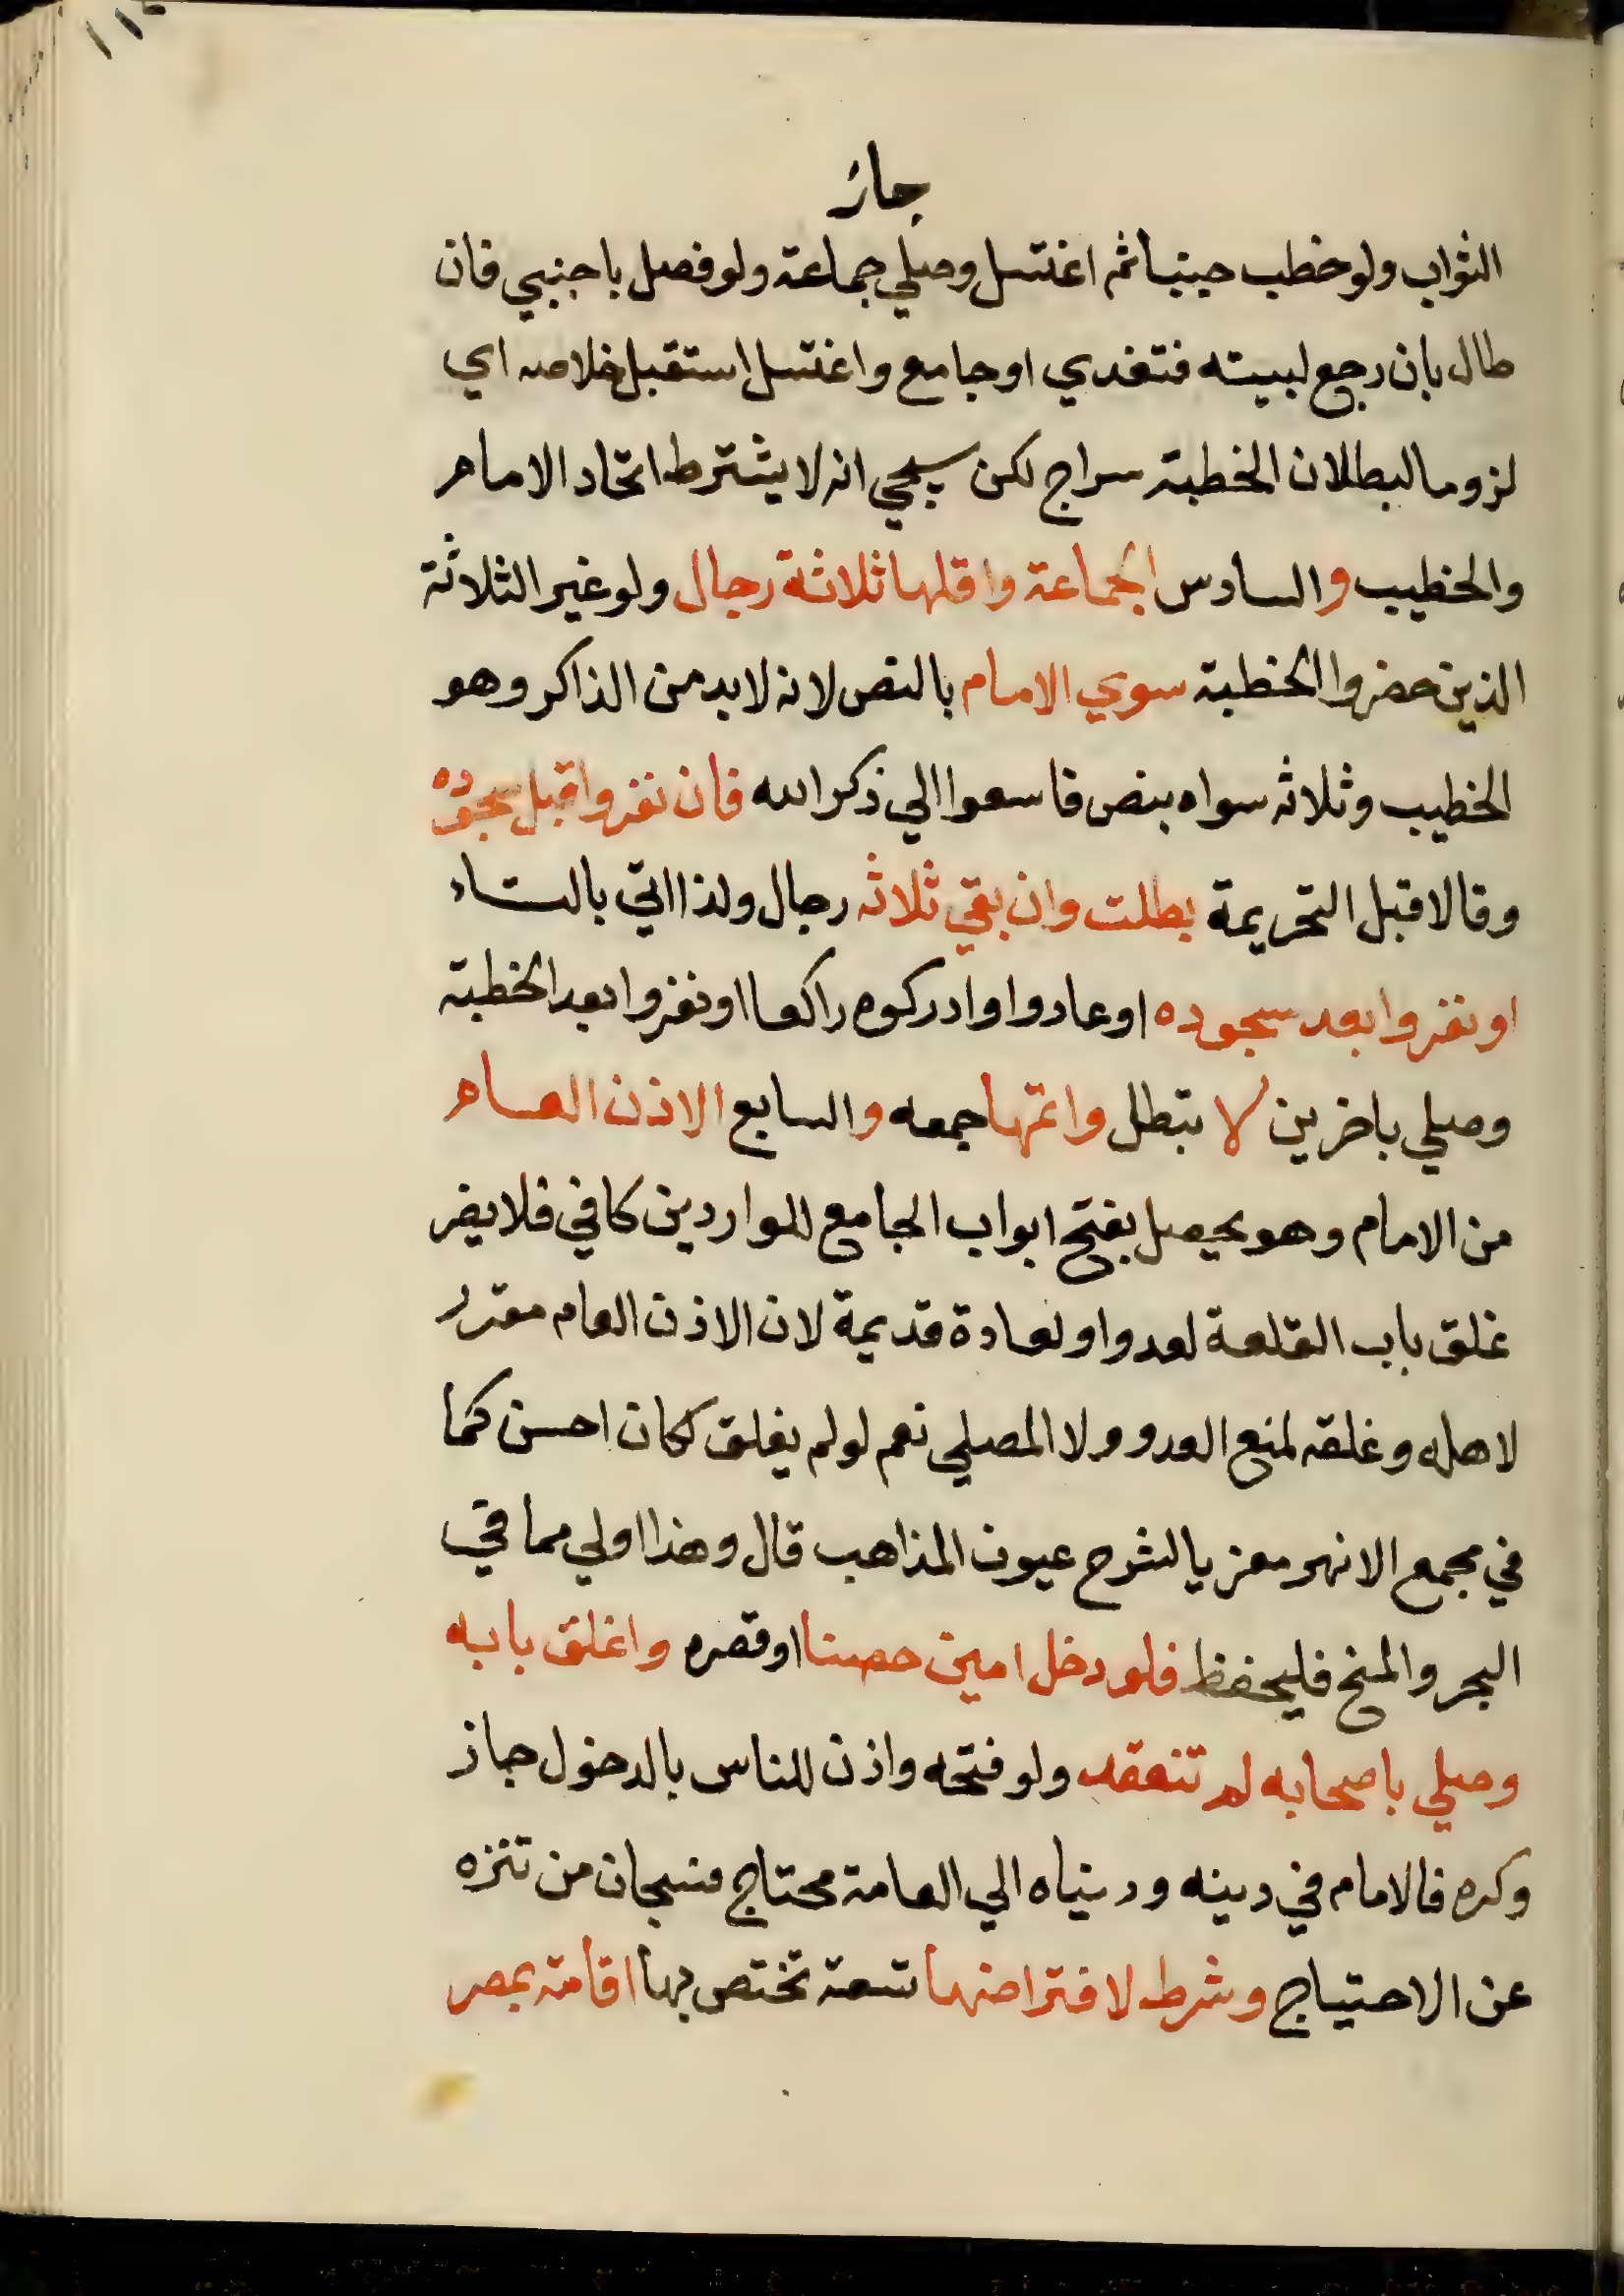 جاز
الثواب ولو خطب جنبا ثم اغتسل وصلي جماعة ولو فصل باجنبي فان
طال بان رجع لبيته فتغدي او جامع واغتسل استقبل خلاصه اي
لزوما لبطلان الخطبة سراج لكن سيجي انه لا يشترط اتحاد الامام
والخطيب والسادس الجماعة واقلها ثلاثة رجال ولو غير الثلاثة
الذين حضروا الخطبة سوي الامام بالنص لانه لابد من الذاكر وهو
الخطيب وثلاثه سواه بنص فاسعوا الي ذكر الله فان نفروا قبل سجوده
وقالا قبل التحريمة بطلت وان بقي ثلاثه رجال ولذا اتي بالتاء
او نفروا بعد سجوده او عادوا وادركوه راكعا او نفروا بعد الخطبة
وصلي باخرين لا تبطل واتمها جمعه والسابع الاذن العام
من الامام وهو يحصل بفتح ابواب الجامع للواردين كافي فلا يضر
غلق باب القلعة لعدو او لعادة قديمة لان الاذن العام مقرر
لاهله وغلقه لمنع العدو ولا المصلي نعم لو لم يغلق لكان احسن كما
في مجمع الانهر معزيا لشرح عيون المذاهب قال وهذا اولي مما في
البحر والمنح فليحفظ فلو دخل امين حصنا او قصره واغلق بابه
وصلي باصحابه لم تنعقد ولو فتحه واذن للناس بالدخول جاز
وكره فالامام في دينه ودنياه الي العامة محتاج فسبحان من تنزه
عن الاحتياج وشرط لافتراضها تسعة تختص بها اقامة بمصر